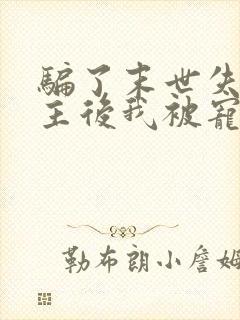 騙了末世失
王後我被寵
勒布朗小詹姆